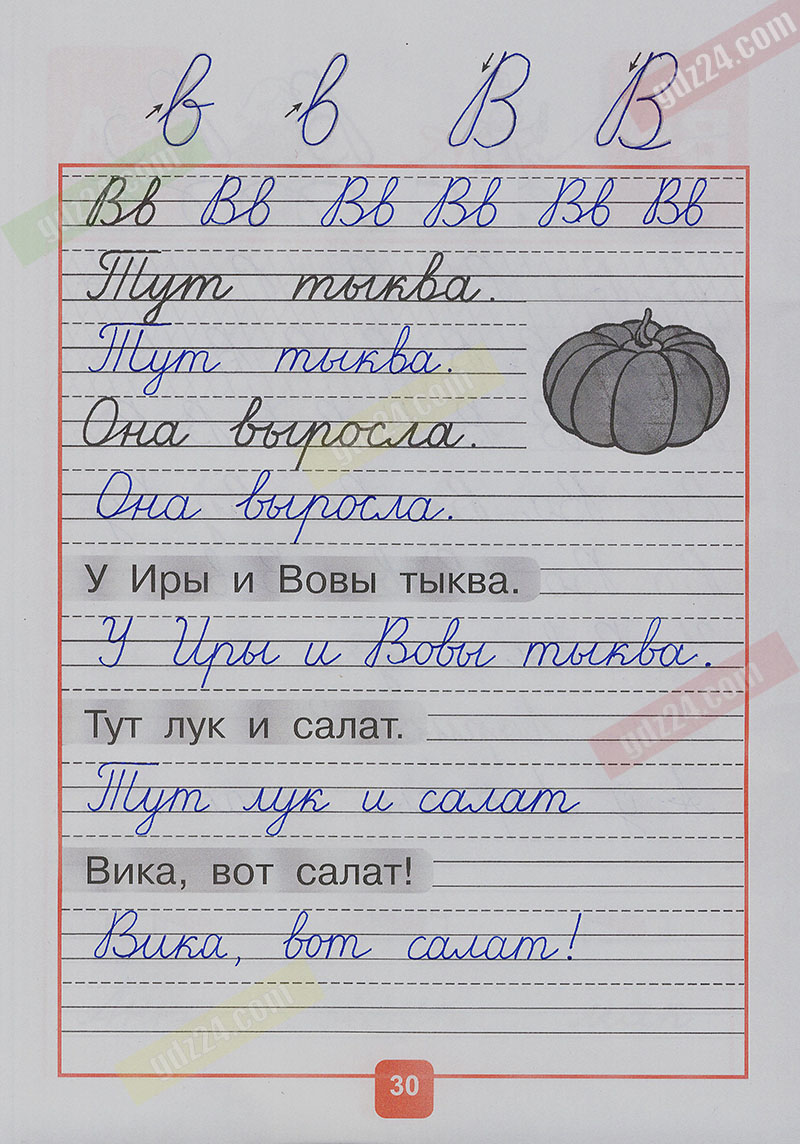 в в В В
Вв Вв Вв Вв Вв Вв
Тут тыква.
Тут тыква.
Она выросла.
Она выросла.
У Иры и Вовы тыква.
У Иры и Вовы тыква.
Тут лук и салат.
Тут лук и салат
Вика, вот салат!
Вика, вот салат!
30
gdz24.com
gdz24.com
gdz24.com
gdz24.com
gdz24.com